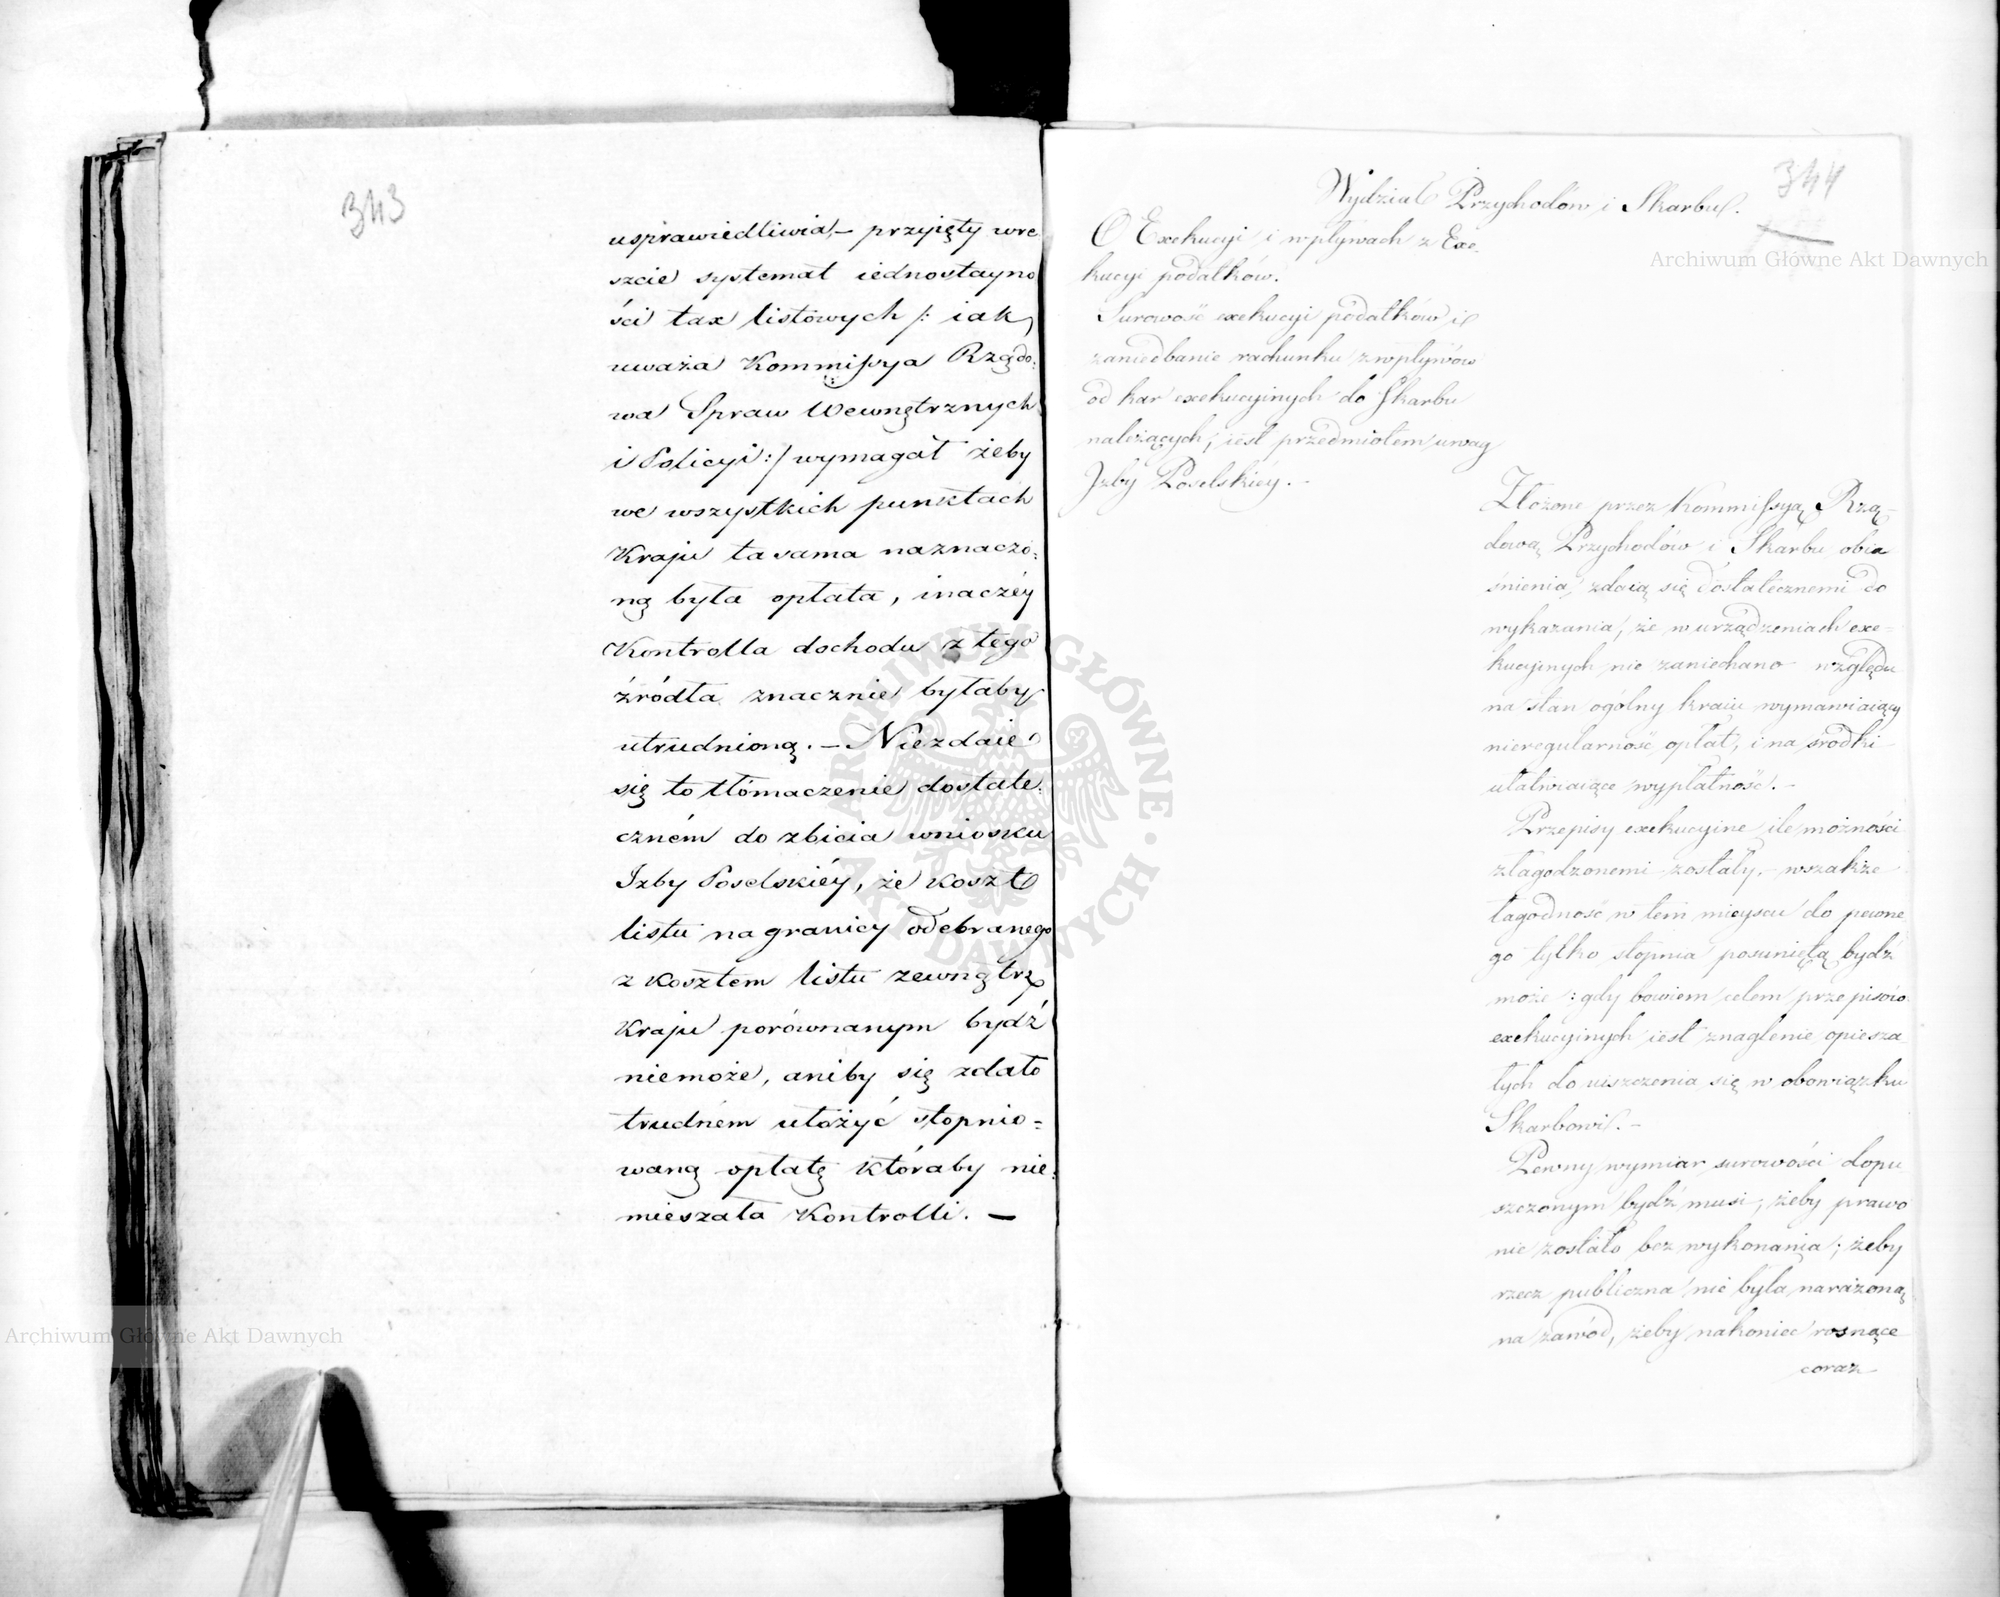 343
usprawiedliwia, – przyięty wre
szcie systemat iednostayno
ści tax listowych /: iak
uważa Kommissya Rządo:
wa Spraw Wewnętrznych
i Policyi :/ wymagał żeby
we wszystkich punktach
Kraju ta sama naznaczo:
ną była opłata, inaczéy
Kontrolla dochodu z tego
źródła znacznie byłaby
utrudnioną. – Niezdaie
się to tłómaczenie dostate:
czném do zbicia wniosku
Izby Poselskiéy, że koszt
listu na granicy odebranego
z kosztem listu zewnątrz
Kraju porównanym bydź
niemoże, aniby się zdało
trudném ułożyć stopnio=
waną opłatę któraby nie
mieszała Kontrolli. –
344
Wydział Przychodów i Skarbu.
O Exekucyi i wpływach z Exe-
kucyi podatków.
Surowość exekucyi podatków i
zaniedbanie rachunku z wpływów
od kar exekucyinych do Skarbu
należących, iest przedmiotem uwag
Izby Poselskiéy. –
Złożone przez Kommissyą Rzą-
dową Przychodów i Skarbu obia
śnienia, zdaią się dostatecznemi do
wykazania, że w urządzeniach exe-
kucyinych nie zaniechano względu
na stan ogólny kraiu wymawiaiący
nieregularność opłat, i na środki
ułatwiaiące wypłatność. –
Przepisy exekucyine ile możności
złagodzonemi zostały, – wszakże
łagodność w tem mieyscu do pewne
go tylko stopnia posuniętą bydź
może: gdy bowiem celem przepisów
exekucyinych iest znaglenie opiesza
łych do uiszczenia się w obowiązku
Skarbowi. –
Pewny wymiar surowości dopu
szczonym bydź musi, żeby prawo
nie zostało bez wykonania; żeby
rzecz publiczna nie była narażoną
na zawód, żeby nakoniec rosnące
coraz
Archiwum Główne Akt Dawnych
Archiwum Główne Akt Dawnych
ARCHIWUM GŁÓWNE AKT DAWNYCH